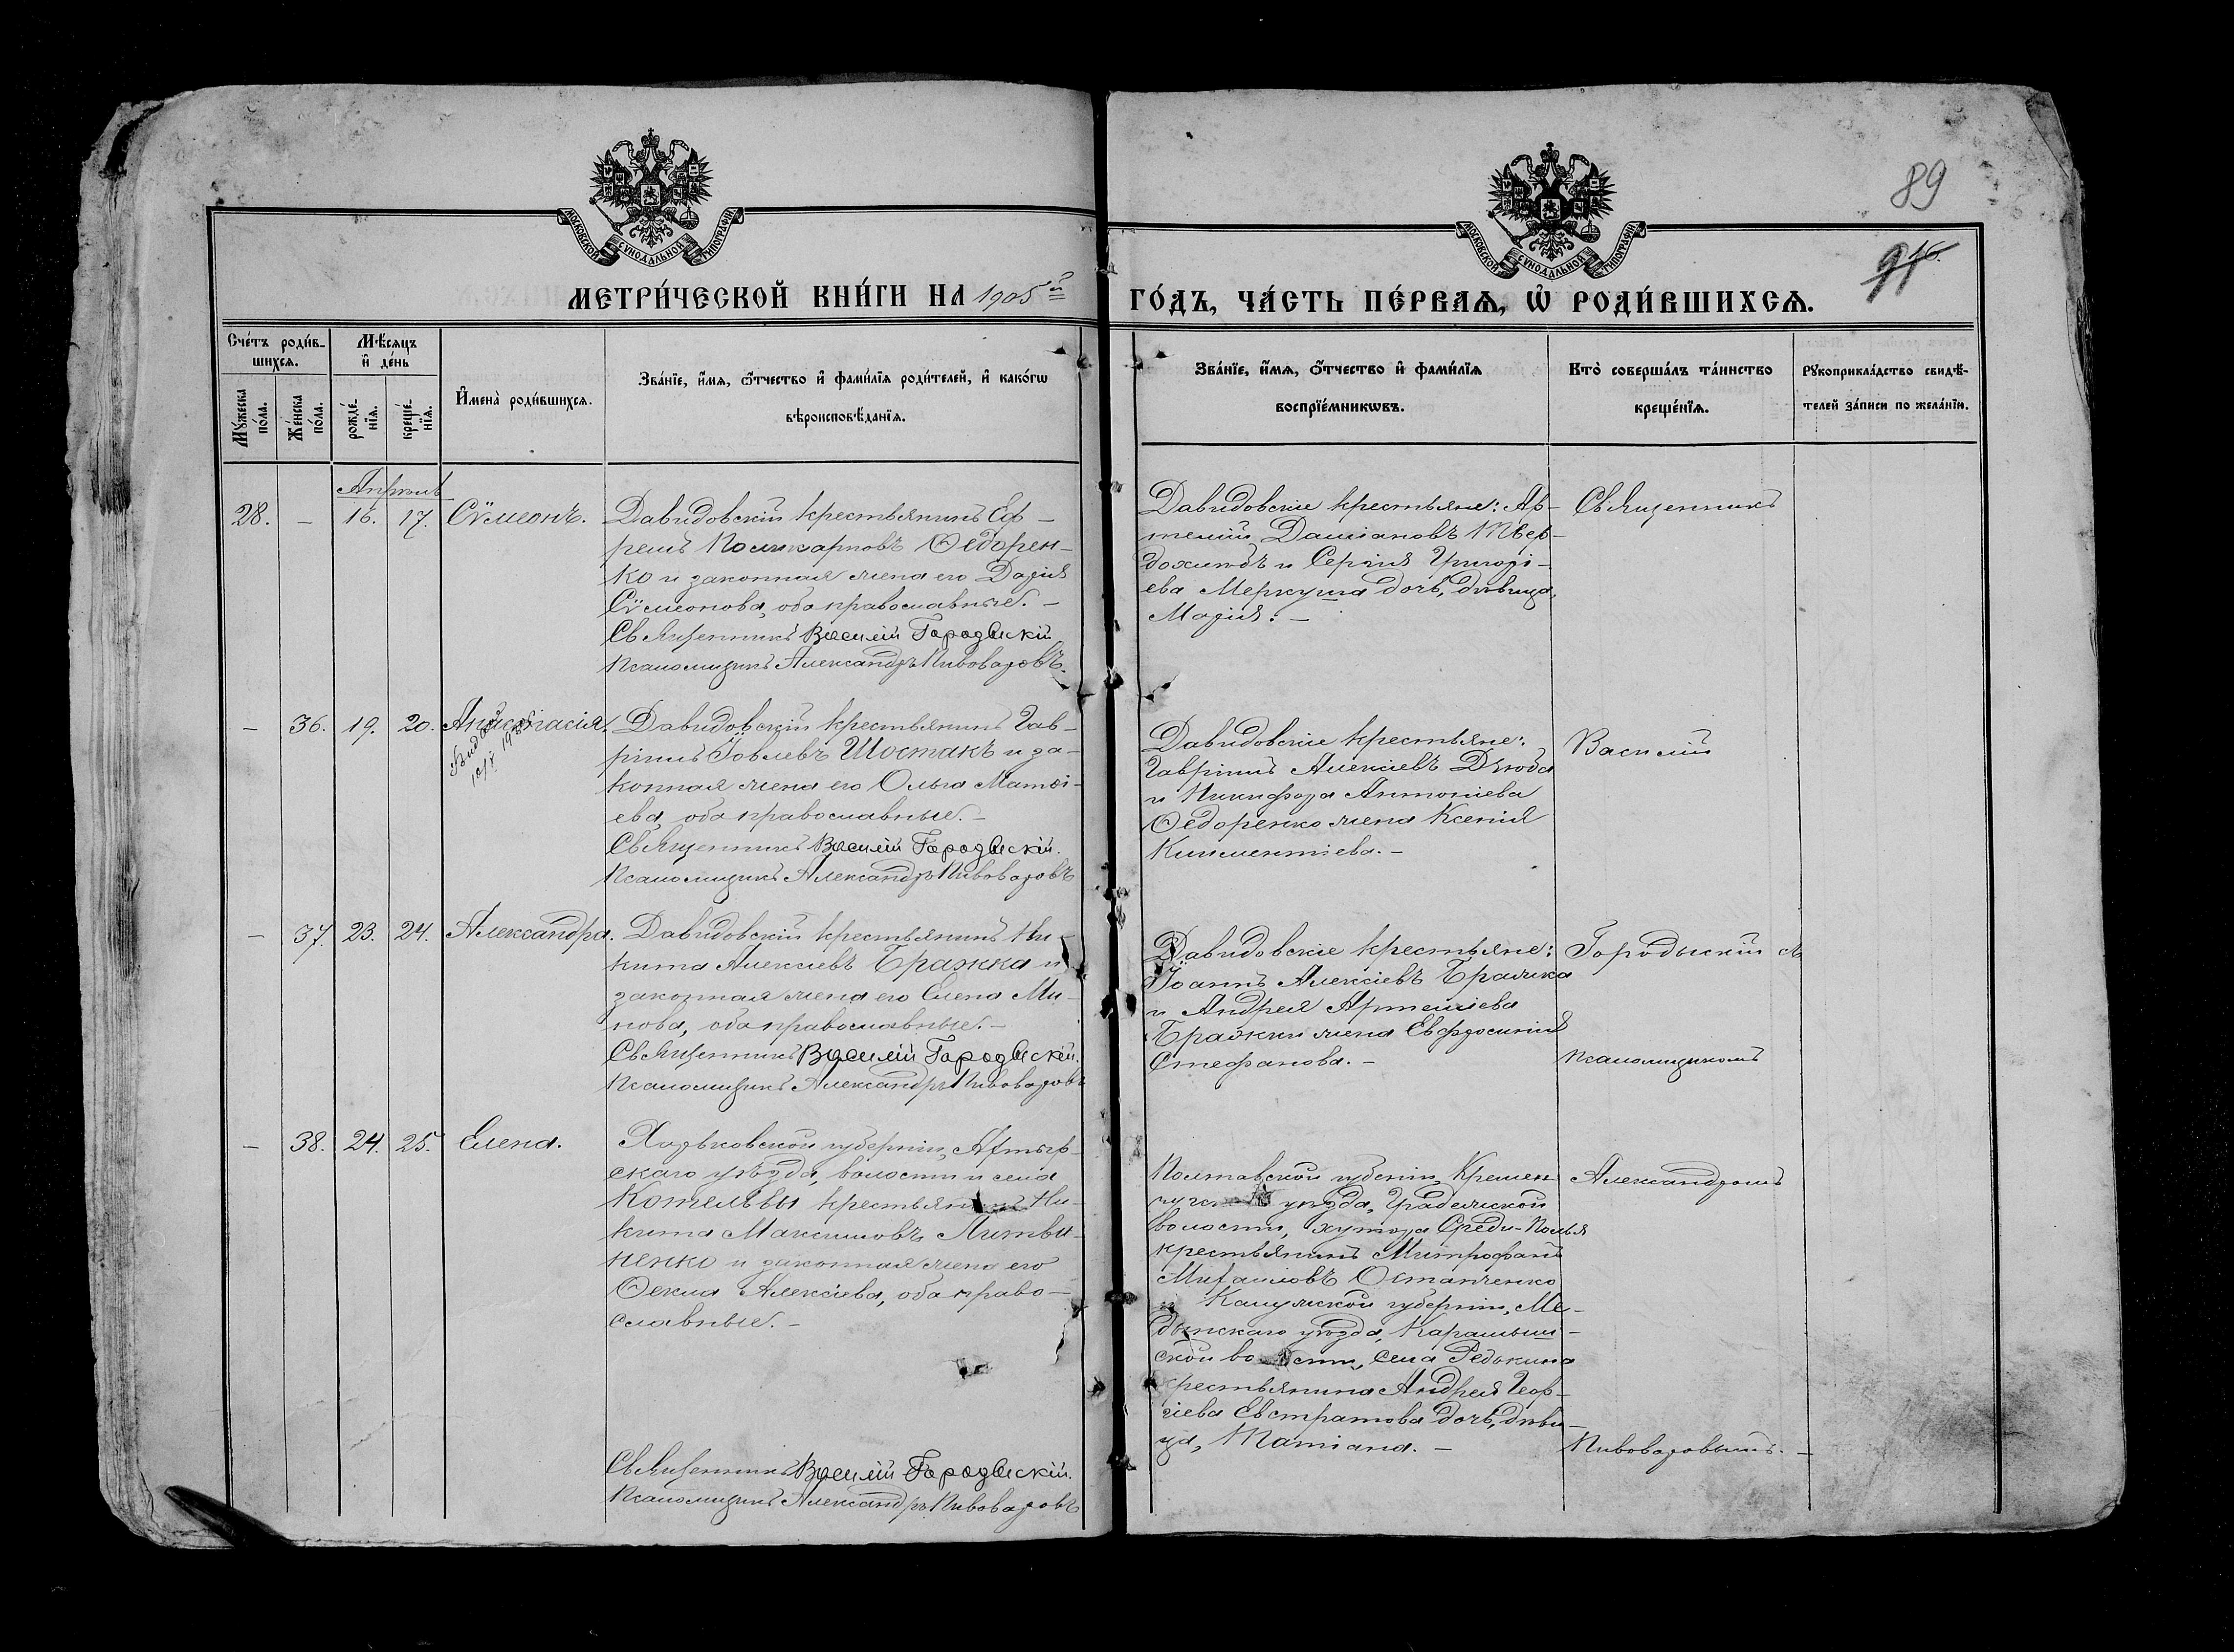 89
МОСКОВСКОЙ СѴНОДАЛЬНОЙ ТИПОГРАФІИ
МОСКОВСКОЙ СѴНОДАЛЬНОЙ ТИПОГРАФІИ
МЕТРИ́ЧЕСКОЙ КНИ́ГИ НА 1905й ГО́ДЪ, ЧА́СТЬ ПЕ́РВАѦ, Ѡ РОДИ́ВШИХСѦ.
Сче́тъ роди́в-
шихсѧ.
Мѣ́сѧцъ
и҆ де́нь
Мꙋ́жеска по́ла.
Же́нска по́ла.
рожде́-нїѧ.
креще́-нїѧ.
И҆мена̀ роди́вшихсѧ.
Зва́нїе, и҆́мѧ, ѻ҆́тчество и҆ фами́лїѧ роди́телей, и҆ како́гѡ
вѣроисповѣ́данїѧ.
Зва́нїе, и҆́мѧ, ѻ҆́тчество и҆ фами́лїѧ
воспрїе́мникѡвъ.
Кто̀ соверша́лъ та́инство
креще́нїѧ.
Рꙋкоприкла́дство свидѣ́-
телей за́писи по жела́нїю.
Апрѣль
28. – 16. 17. Сѷмеонъ.
Давидовскій крестьянинъ Еф-
ремъ Поликарповъ Ѳедорен-
ко и законная жена его Дарія
Сѷмеонова, оба православные. –
Священникъ Василій Городыскій
Псаломщикъ Александръ Пивоваровъ.
Давидовскіе крестьяне: Ар-
темій Даміановъ Твер-
дохлѣбъ и Сергія Григорі-
ева Меркуша дочь, дѣвица,
Марія: –
Священникъ
– 36. 19. 20. Анастасія.
Давидовскій крестьянинъ Гав-
ріилъ Іовлевъ Шостакъ и за-
конная жена его Ольга Матѳі-
ева, оба православные. –
Священникъ Василій Городыскій.
Псаломщикъ Александръ Пивоваровъ
Давидовскіе крестьяне:
Гавріилъ Алексіевъ Дзюба
и Никифора Антоніева
Ѳедоренко жена Ксенія
Климентіева. –
Василій
– 37. 23. 24. Александра.
Давидовскій крестьянинъ Ни-
кита Алексіевъ Бражка и
законная жена его Елена Ми-
нова, оба православные. –
Священникъ Василій Городыскій.
Псаломщикъ Александръ Пивоваровъ
Давидовскіе крестьяне:
Іоаннъ Алексіевъ Бражка
и Андрея Артеміева
Бражки жена Евфросинія
Стефанова. –
Городыскій съ
псаломщикомъ
– 38. 24. 25. Елена.
Харьковской губерніи, Ахтыр-
скаго уѣзда, волости и села
Котельвы крестьянинъ Ни-
кита Максимовъ Литви-
ненко и законная жена его
Ѳекла Алексіева, оба право-
славные. –
Священникъ Василій Городыскій.
Псаломщикъ Александръ Пивоваровъ
Полтавской губерніи, Кремен
уѣзда, Градижской
волости, хутора Среди-Полья
крестьянинъ Митрофанъ
Михаиловъ Остапченко
и Калужской губерніи, Ме-
дынскаго уѣзда,
села Редькина
крестьянина Андрея Геор-
гіева Евстратова дочь, дѣви-
ца, Татіана. –
Александромъ
Пивоваровымъ. –